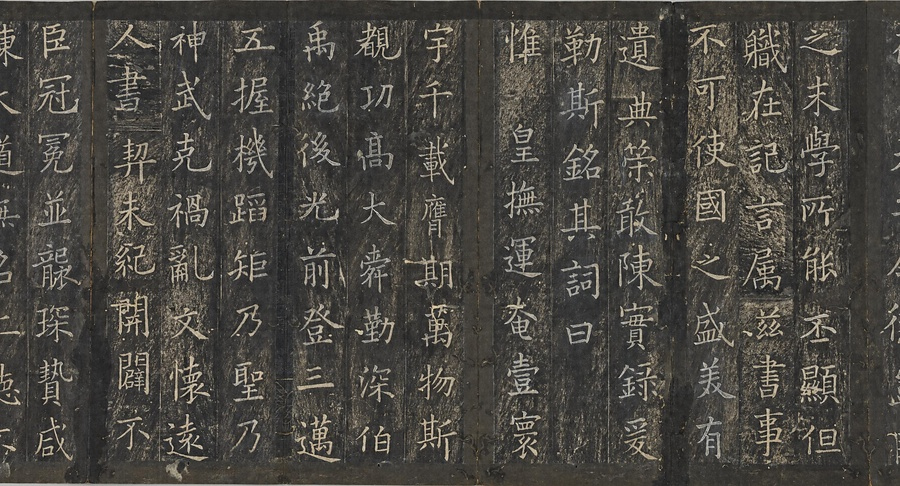 之末學所能丕顯但
職在記言属茲書事
不可使國之盛美有
遺典榮敢陳實錄爰
勒斯銘其詞曰
惟皇撫運奄壹寰
宇千載膺期萬物斯
覩功高大舜勤深伯
禹絕後光前登三邁
五握機蹈矩乃聖乃
神武克禍亂文懷遠
人書契未紀開闢不
臣冠冕並襲琛贄咸